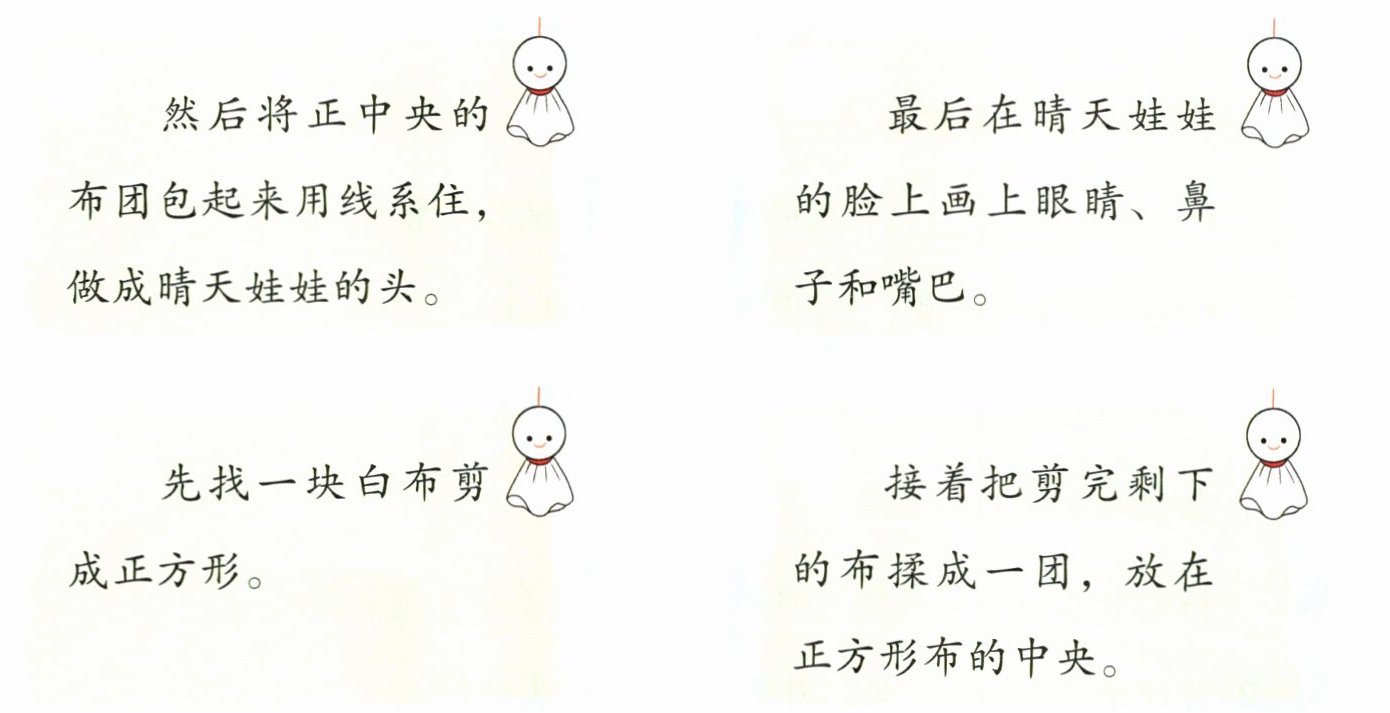 然后将正中央的
布团包起来用线系住，
做成晴天娃娃的头。
最后在晴天娃娃
的脸上画上眼睛、鼻
子和嘴巴。
先找一块白布剪
成正方形。
接着把剪完剩下
的布揉成一团，放在
正方形布的中央。